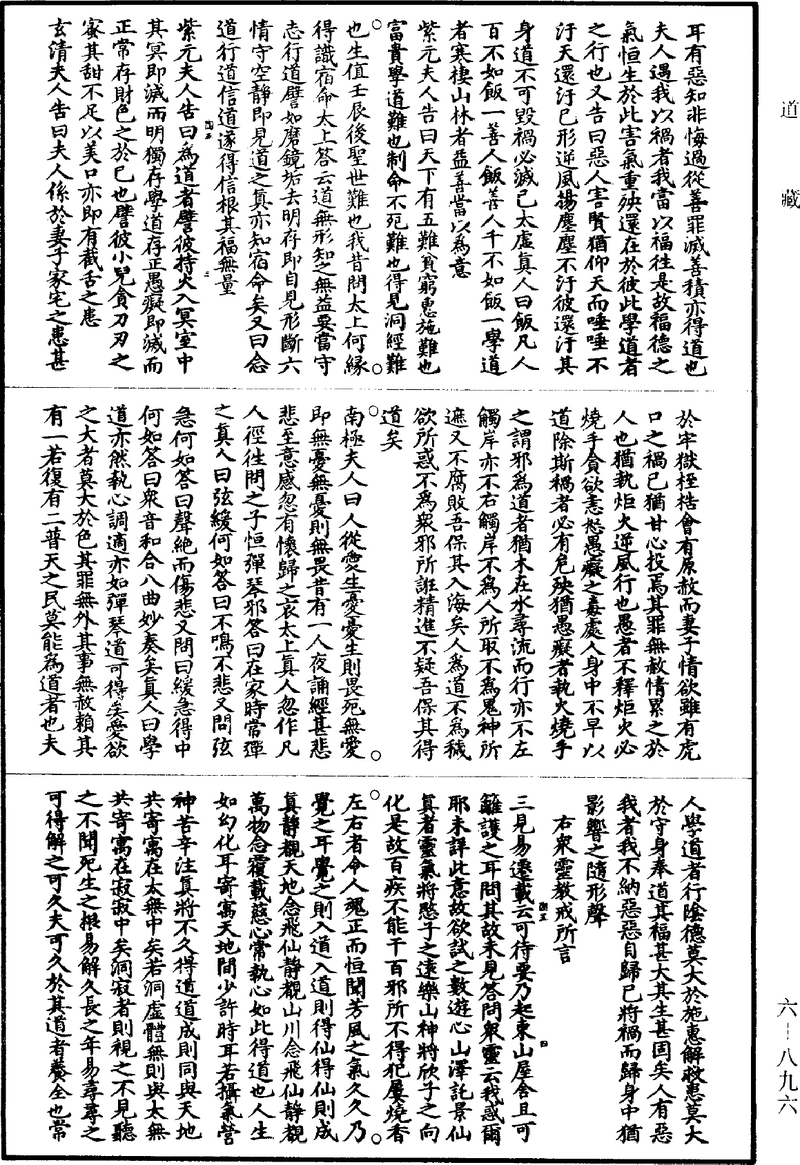 道藏
耳有惡知非悔過從善罪滅善積亦得道也
夫人遇我以禍者我當以福往是故福德之
氣恒生於此害氣重殃還在於彼此學道者
之行也又告曰惡人害賢猶仰天而唾唾不
汙天還汙已形逆風揚塵塵不汙彼還汙其
身道不可毀禍必滅已太虛真人曰飯凡人
百不如飯一善人飯善人千不如飯一學道
者寒棲山林者益善當以為意
紫元夫人告曰天下有五難貧窮惠施難也
富貴學道難也制命不死難也得見洞經難
也生值壬辰後聖世難也我昔問太上何緣
得識宿命太上答云道無形知之無益要當守
志行道譬如磨鏡垢去明存即自見形斷六
情守空靜即見道之真亦知宿命矣又曰念
道行道信道遂得信根其福無量
紫元夫人告曰為道者譬彼持火入冥室中
其冥即滅而明獨存學道存正愚癡即滅而
正常存財色之於已也譬彼小兒貪刀刃之
蜜其甜不足以美口亦即有截舌之患
玄清夫人告曰夫人係於妻子家宅之患甚
於牢獄桎梏會有原赦而妻子情欲雖有虎
口之禍已猶甘心投焉其罪無赦情累之於
人也猶執炬火逆風行也愚者不釋炬火必
燒手貪欲恚怒愚癡之毒處人身中不早以
道除斯禍者必有危殃猶愚癡者執火燒手
之謂邪為道者猶木在水尋流而行亦不左
觸岸亦不右觸岸不為人所取不為鬼神所
遮又不腐敗吾保其入海矣人為道不為穢
欲所惑不為衆邪所誑精進不疑吾保其得
道矣
南極夫人曰人從愛生憂憂生則畏死無愛
即無憂無憂則無畏昔有一人夜誦經甚悲
悲至意感忽有懷歸之哀太上真人忽作凡
人徑往問之子恒彈琴邪答曰在家時常彈
之真人曰弦緩何如答曰不鳴不悲又問弦
急何如答曰聲絕而傷悲又問曰緩急得中
何如答曰衆音和合八曲妙奏矣真人曰學
道亦然執心調適亦如彈琴道可得矣愛欲
之大者莫大於色其罪無外其事無赦賴其
有一若復有二普天之民莫能為道者也夫
人學道者行陰德莫大於施惠解救患莫大
於守身奉道其福甚大其生甚固矣人有惡
我者我不納惡惡自歸已將禍而歸身中猶
影響之隨形聲
右衆靈教戒所言
三見易遷載云可待要乃起東山屋舍且可
籬護之耳問其故未見答問衆靈云我惑爾
耶未詳此意故欲試之數遊心山澤託景仙
真者靈氣將愍子之遠樂山神將欣子之向
化是故百疾不能干百邪所不得犯屢燒香
左右者令人魂正而恒聞芳風之氣久久乃
覺之耳覺之則入道入道則得仙得仙則成
真靜觀天地念飛仙靜觀山川念飛仙靜觀
萬物念覆載慈心常執心如此得道也人生
如幻化耳寄寓天地間少許時耳若攝氣營
神苦辛注真將不久得道道成則同與天地
共寄寓在太無中矣若洞虛體無則與太無
共寄寓在寂寂中矣洞寂者則視之不見聽
之不聞死生之根易解久長之年易尋尋之
可得解之可久夫可久於其道者養全也常
六—八九六